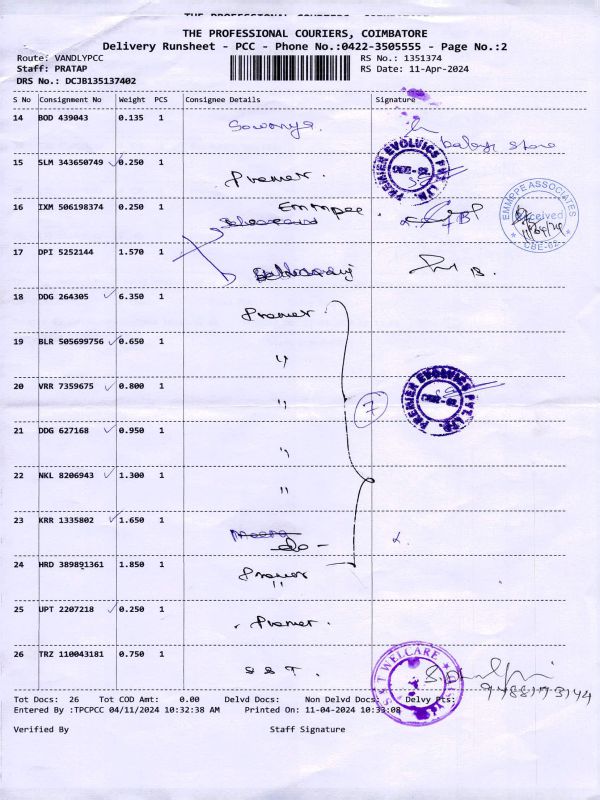 THE PROFESSIONAL COURIERS, COIMBATORE
Delivery Runsheet - PCC - Phone No.:0422-3505555 - Page No.:2
Route: VANDLYPCC RS No.: 1351374
Staff: PRATAP RS Date: 11-Apr-2024
DRS No.: DCJB135137402
S No Consignment No Weight PCS Consignee Details Signature
14 BOD 439043 0.135 1 Sowmya.
15 SLM 343650749 0.250 1 Premier. PREMIER EVOLVICS PVT. LTD. CBE-62.
16 IXM 506198374 0.250 1 Emmpee EMMRPE ASSOCIATES Received CBE-62
17 DPI 5252144 1.570 1
18 DDG 264305 6.350 1 Premier.
19 BLR 505699756 0.650 1 "
20 VRR 7359675 0.800 1 " 7 PREMIER EVOLVICS PVT. LTD. CBE-62.
21 DDG 627168 0.950 1 "
22 NKL 8206943 1.300 1 "
23 KRR 1335802 1.650 1 do -
24 HRD 389891361 1.850 1 Premier "
25 UPT 2207218 0.250 1 Premier.
26 TRZ 110043181 0.750 1 S S T. S&T WELCARE
Tot Docs: 26 Tot COD Amt: 0.00 Delvd Docs: Non Delvd Docs: Delvy Pts:
Entered By :TPCPCC 04/11/2024 10:32:38 AM Printed On: 11-04-2024 10:33:08
Verified By Staff Signature